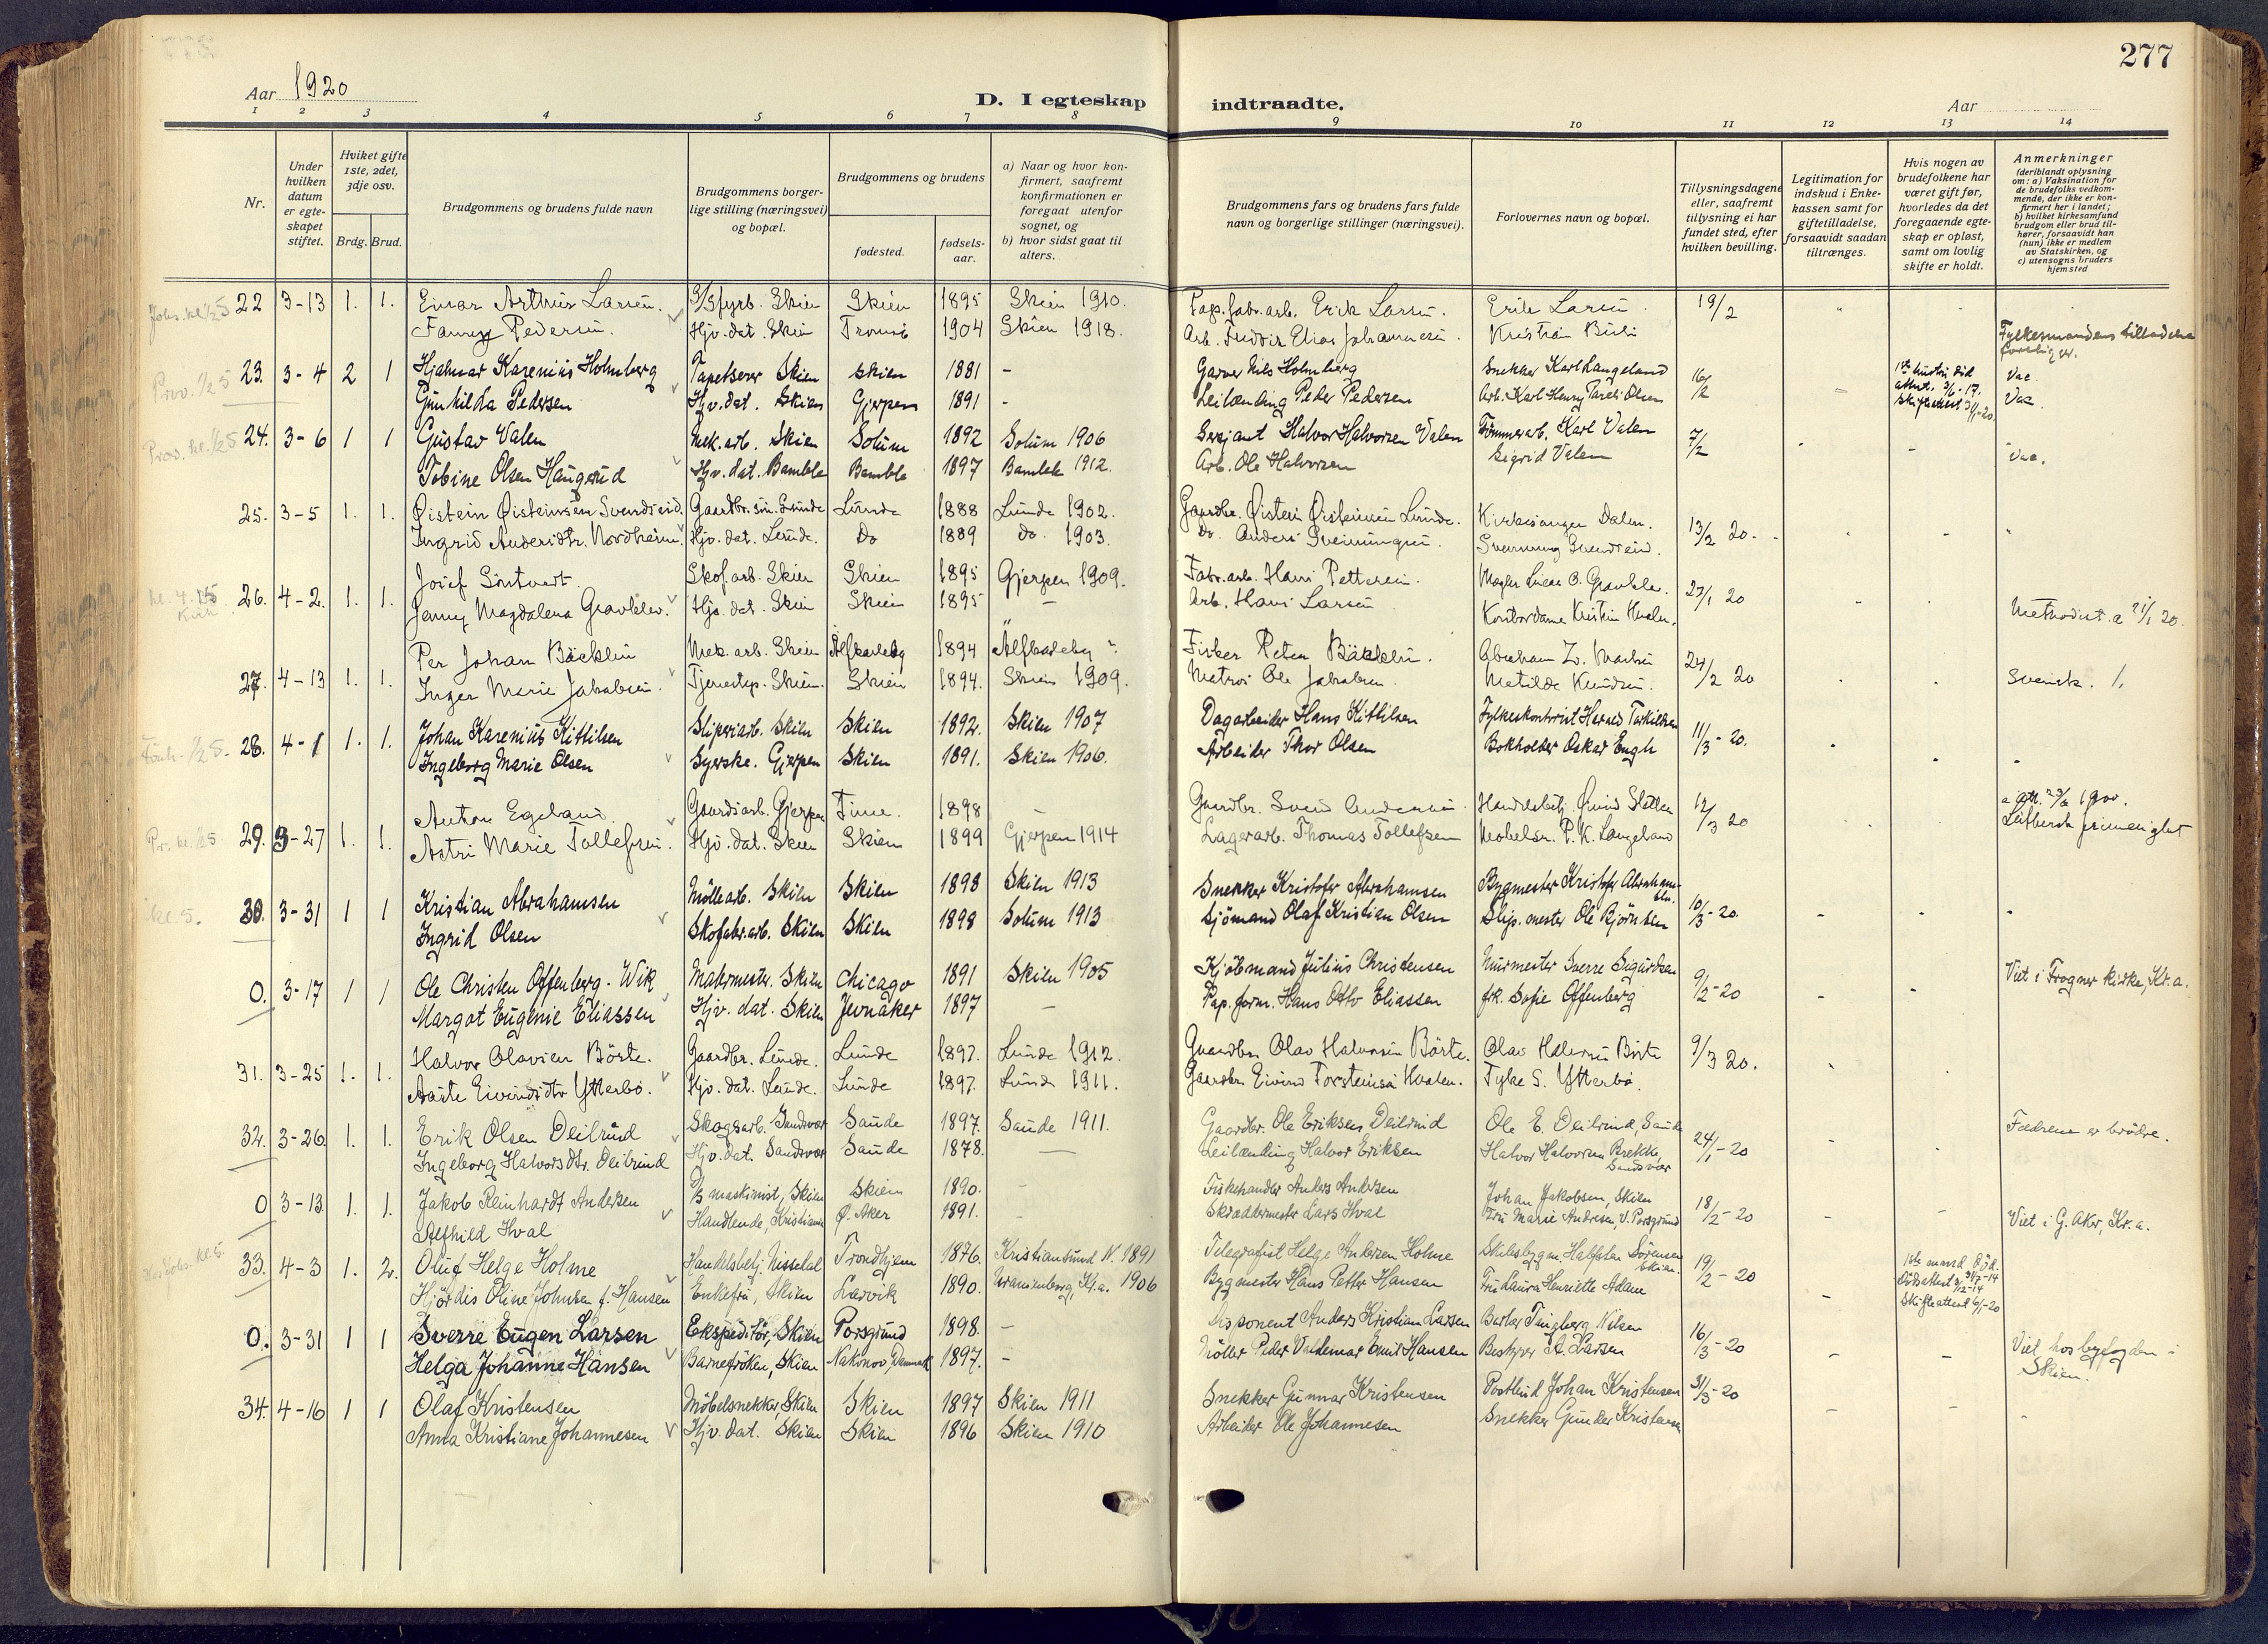 277
Aar 1920
D. I egteskap indtraadte.
Aar
1 2 3 4 5 6 7 8 9 10 11 12 13 14
Nr.
Under hvilken datum er egteskapet stiftet.
Hvilket gifte 1ste, 2det, 3dje osv.
Brdg. Brud.
Brudgommens og brudens fulde navn
Brudgommens borgerlige stilling (næringsvei) og bopæl.
Brudgommens og brudens
fødested.
fødselsaar.
a) Naar og hvor konfirmert, saafremt konfirmationen er foregaat utenfor sognet, og
b) hvor sidst gaat til alters.
Brudgommens fars og brudens fars fulde navn og borgerlige stillinger (næringsvei).
Forlovernes navn og bopæl.
Tillysningsdagene eller, saafremt tillysning ei har fundet sted, efter hvilken bevilling.
Legitimation for indskud i Enkekassen samt for giftetilladelse, forsaavidt saadan tiltrænges.
Hvis nogen av brudefolkene har været gift før, hvorledes da det foregaaende egteskap er opløst, samt om lovlig skifte er holdt.
Anmerkninger (deriblandt oplysning om: a) Vaksination for de brudefolks vedkommende, der ikke er konfirmert her i landet; b) hvilket kirkesamfund brudgom eller brud tilhører, forsaavidt han (hun) ikke er medlem av Statskirken, og c) utensogns bruders hjemsted
22 3-13 1. 1. Einar Arthur Larsen. Skien Skien 1895 Skien 1910. Pap.fabr.arb. Erik Larsen. Erik Larsen 19/2
Fanny Pedersen. Hjv. dat. Skien Tromsö 1904 Skien 1918. Arb. Fredrik Elias Johannesen. Kristian Fylkesmandens tilladelse
23. 3-4 2 1 Hjalmar Karenius Holmberg Tapetserer Skien Skien 1881 - Garver Nils Holmberg Snekker Karl Langeland 16/2 1ste hustru død Vac.
Gunhilda Pedersen Hjv. dat. Skien Gjerpen 1891 - Leilænding Peder Pedersen Arb. Karl Henry Olsen Vac.
24. 3-6 1 1 Gustav Valen Mek. arb. Skien Solum 1892 Solum 1906 Sersjant Halvor Halvorsen Valen Tömmerarb. Karl Valen 7/2
Tobine Olsen Haugerud Hjv. dat. Bamble Bamble 1897 Bamble 1912. Arb. Ole Halvorsen Sigrid Valen Vac.
25. 3-5 1. 1. Øistein Øisteinsen Svendseid. Gaardbr. sön. Lunde Lunde 1888 Lunde 1902. Gaardbr. Øistein Øisteinsen Lunde. Kirkesanger Dalen. 13/2 20.
Ingrid Andersdtr. Nordheim. Hjv. dat. Lunde. Do 1889 do. 1903. Do. Anders Sveinungsen. Sveinung Svendseid.
26. 4-2. 1. 1. Josef Sörtvedt. Skof. arb. Skien Skien 1895 Gjerpen 1909. Fabr. arb. Hans Pettersen. 27/1 20
Jenny Magdalena Gravklev. Hjv. dat. Skien Skien 1895 - Arb. Hans Larsen Kontordame Kristin Methodist.
27. 4-13 1. 1. Per Johan Bäcklin Mek. arb. Skien Älfkarleby 1894 Älfkarleby ?. Fisker Peter Bäcklin. 24/2 20
Inger Marie Jakobsen. Tjenestep. Skien. Skien 1894. Skien 1909. Matros Ole Jakobsen. Matilde Knudsen. Svensk.
28. 4-1 1. 1. Johan Karenius Kittilsen Sliperiarb. Skien Skien 1892. Skien 1907 Dagarbeider Hans Kittilsen Fylkeskontorist 11/3-20.
Ingeborg Marie Olsen Syerske. Gjerpen Skien 1891. Skien 1906. Arbeider Thor Olsen Bokholder Oskar Engh
29. 3-27 1. 1. Anton Egeland. Gaardsarb. Gjerpen Time. 1898 - Gaardbr. Svend Andersen. Øivind Sletten 12/3 20
Astri Marie Tollefsen. Hjv. dat. Skien Skien 1899 Gjerpen 1914 Lagerarb. Thomas Tollefsen P. K. Langeland
30. 3-31 1 1 Kristian Abrahamsen Möllearb. Skien Skien 1898 Skien 1913 Snekker Kristofer Abrahamsen Bygmester Kristofer Abrahamsen. 10/3-20.
Ingrid Olsen Skofabr.arb. Skien Skien 1898 Solum 1913 Sjömand Olaf Kristian Olsen Slip. mester Ole Björnsen
0. 3-17 1 1 Ole Christen Offenberg-Wik Malermester. Skien Chicago 1891 Skien 1905 Kjöbmand Julius Christensen Murmester Sverre Sigurdsen 9/2-20 Viet i Frogner kirke, Kr.a.
Margot Eugenie Eliassen Hjv. dat. Skien Jevnaker 1897 - Pap. form. Hans Otto Eliassen frk. Sofie Offenberg
31. 3-25 1. 1. Halvor Olavsen Börte. Gaardbr. Lunde. Lunde 1897. Lunde 1912. Gaardbr. Olav Halvorsen Börte. Olav Halvorsen Börte 9/3 20.
Aaste Eivindsdtr Ytterbö. Hjv. dat. Lunde. Lunde 1897. Lunde 1911. Gaardbr. Eivind Torsteinsen Hvalen. Tyke S. Ytterbö.
32. 3-26. 1. 1. Erik Olsen Deilrind Skogsarb. Sandsvær Saude 1897. Saude 1911. Gaardbr. Ole Eriksen Deilrind Ole E. Deilrind, Saude 24/1-20 Fædrene er brödre.
Ingeborg Halvorsdtr. Deilrind Hjv. dat. Sandsvær Saude 1878. - Leilænding Halvor Eriksen Halvor Halvorsen Brekke, Sandsvær
0 3-13. 1. 1. Jakob Reinhardt Andersen maskinist, Skien Skien 1890. - Fiskehandler Anders Andersen Johan Jakobsen, Skien 18/2-20 Viet i G. Aker, Kr.a.
Alfhild Hval Handlende, Kristiania Ø. Aker 1891. - Skræddermester Lars Hval Fru Marie Andresen, V. Porsgrund
33. 4-3 1. 2. Oluf Helge Holme Handelsbetj. Nissedal Trondhjem 1876. Kristiansund N. 1891 Telegrafist Helge Andersen Holme Skibsbygm. Halfdan Sörensen Skien. 19/2-20 1ste mand död.
Hjördis Oline Johnsen f. Hansen Enkefru, Skien Larvik 1890. Uranienborg, Kr.a. 1906 Bygmester Hans Petter Hansen Fru Laura Henriette Adam Skifteattest 6/1-20
0. 3-31 1 1 Sverre Eugen Larsen Ekspeditör, Skien Porsgrund 1898. - Disponent Anders Kristian Larsen Barber Tingberg Nilsen 16/3-20
Helga Johanne Hansen Barnefröken, Skien Nakskov, Danmark 1897. - Möller Peder Valdemar Emil Hansen Bestyrer A. Larsen Viet hos byfogden i Skien.
34. 4-16 1 1 Olaf Kristensen Möbelsnekker, Skien Skien 1897 Skien 1911 Snekker Gunnar Kristensen Postbud Johan Kristensen 31/3-20
Anna Kristiane Johannesen Hjv. dat. Skien Skien 1896 Skien 1910 Arbeider Ole Johannesen Snekker Gunder Kristensen